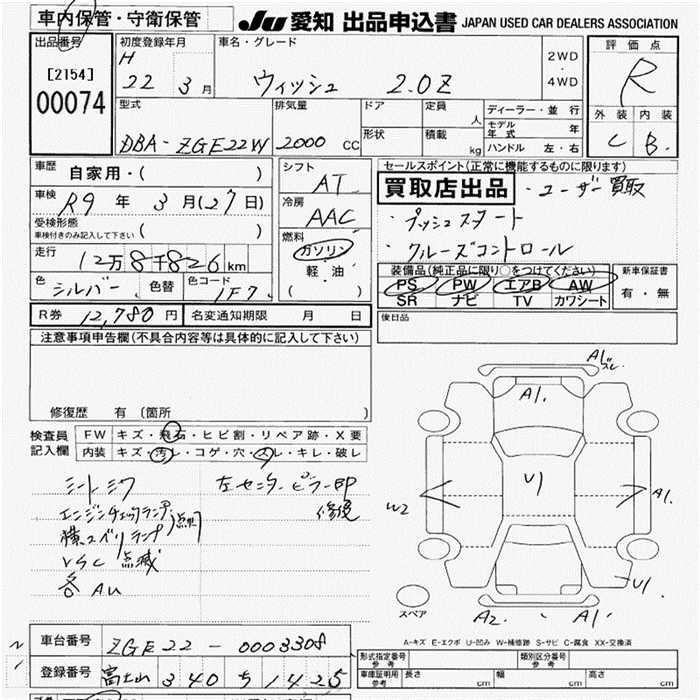 車内保管・守衛保管
JU 愛知 出品申込書 JAPAN USED CAR DEALERS ASSOCIATION
出品番号
[2154]
00074
初度登録年月
H
22 3月
車名・グレード
ウィッシュ 2.0Z
2WD
・
4WD
評価点
R
外装 内装
C B
型式
DBA-ZGE22W
排気量
2000 CC
ドア
形状
定員
人
積載
kg
ディーラー・並行
モデル年式 年
ハンドル 左・右
車歴 自家用・( )
車検 R9年 3月(27日)
受検形態
車検付きのみ記入して下さい ( )
走行 12万8千826km
色 シルバー 色替 色コード 1F7
シフト
AT
冷房
AAC
燃料
ガソリン
軽・油
( )
セールスポイント(正常に機能するものに限ります)
買取店出品 ・ユーザー買取
・プッシュスタート
・クルーズコントロール
装備品(純正品に限り○をつけてください)
PS PW エアB AW
SR ナビ TV カワシート
新車保証書
有・無
後日品
R券 12,780円 名変通知期限 月 日
注意事項申告欄(不具合内容等は具体的に記入して下さい)
修復歴 有(箇所 )
検査員記入欄
FW キズ・飛石・ヒビ割・リペア跡・X要
内装 キズ・汚レ・コゲ・穴・スレ・キレ・破レ
シートシワ
エンジンチェックランプ
横スベリランプ 点灯
VSC 点滅
各AU
左センターピラーBP
修復
A1.
スレ
A1.
U1
W2
A1.
U1
A2.
A1.
スペア
A-キズ E-エクボ U-凹み W-補修跡 S-サビ C-腐食 XX-交換済
車台番号 ZGE22-0003308
登録番号 富士山 340 ち 1425
型式指定番号
参考
類別区分番号
参考
車庫証明用
参考
長さ cm 幅 cm 高さ cm